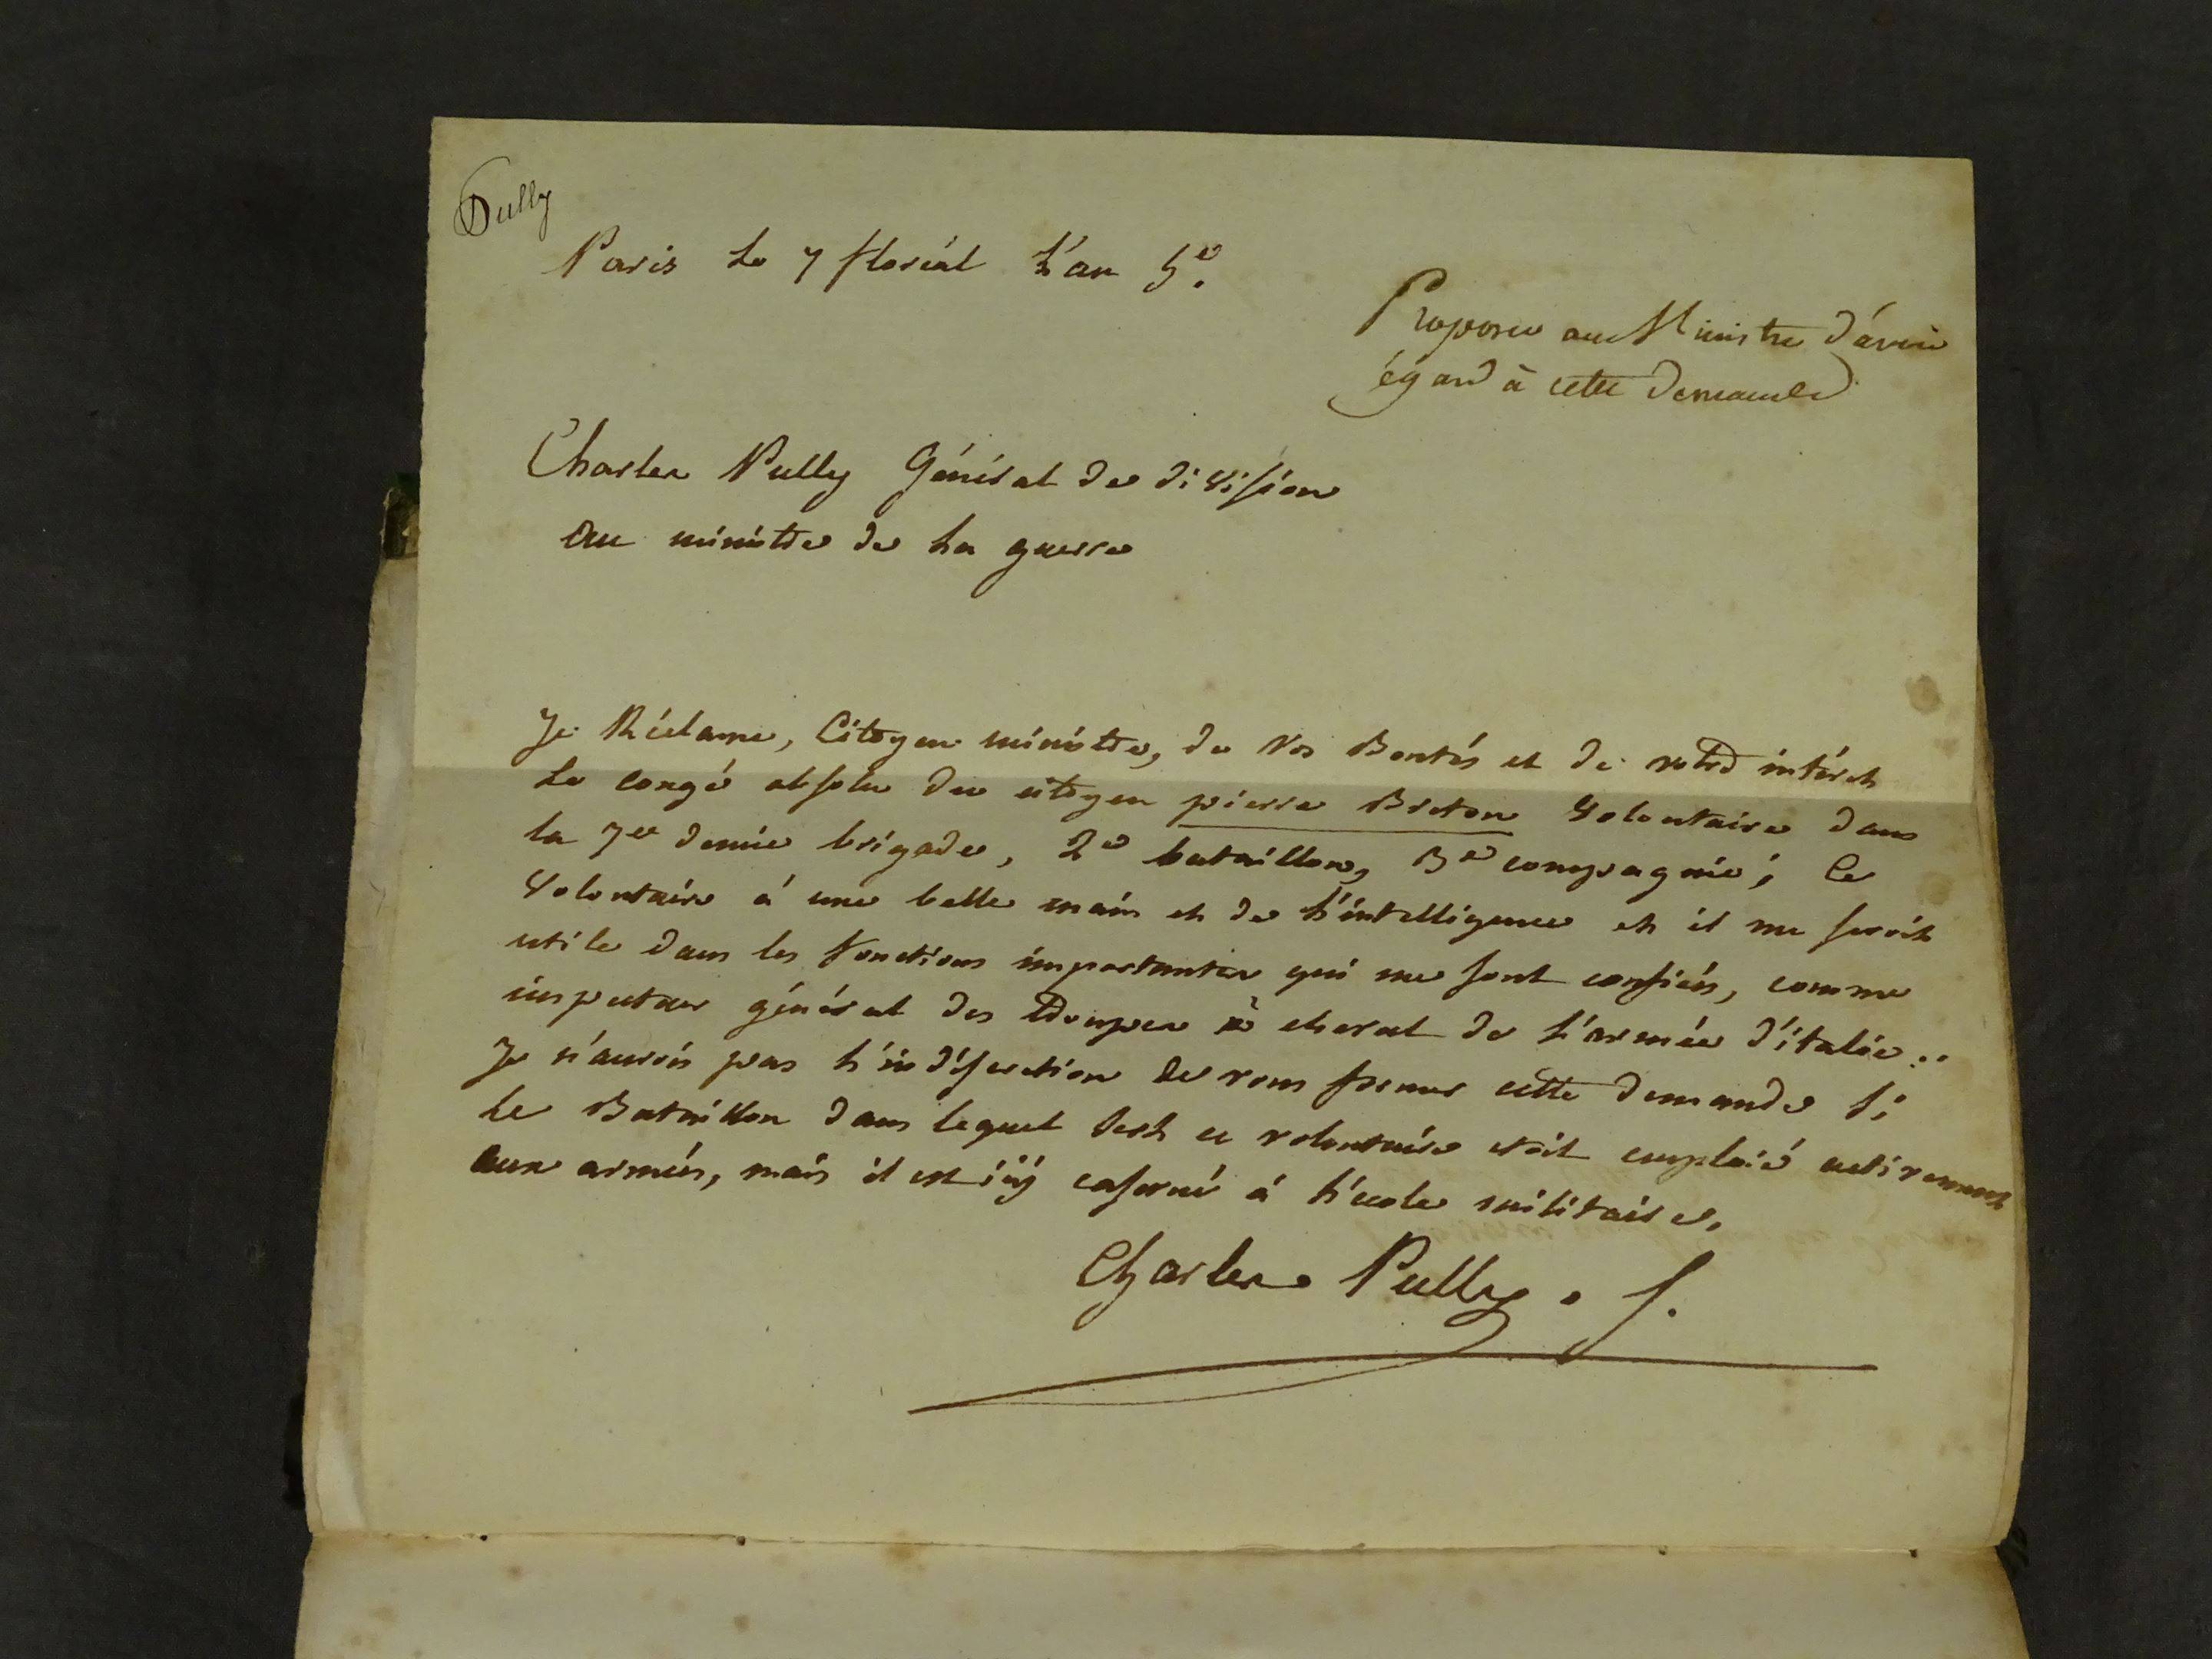 Pully
Paris Le 7 floréal L'an 5e.
Proposé au Ministre d'avoir
égard à cette demande
Charles Pully Général de division
au ministre de La guerre
Je Réclame, Citoyen ministre, de Vos Bontés et de votre intérêt
Le congé absolu du citoyen pierre Breton Volontaire dans
la 7e demie brigade, 2e bataillon, 3e compagnie; Ce
Volontaire à une belle main et de L'intelligence et il me seroit
utile dans les fonctions importantes qui me sont confiées, comme
inspecteur général des troupes à cheval de L'armée d'italie..
Je n'aurois pas L'indiscretion de vous former cette demande si
Le Bataillon dans lequel sert ce volontaire etoit emploié activement
aux armées, mais il est icy caserné à L'ecole militaire.
Charles Pully . f.